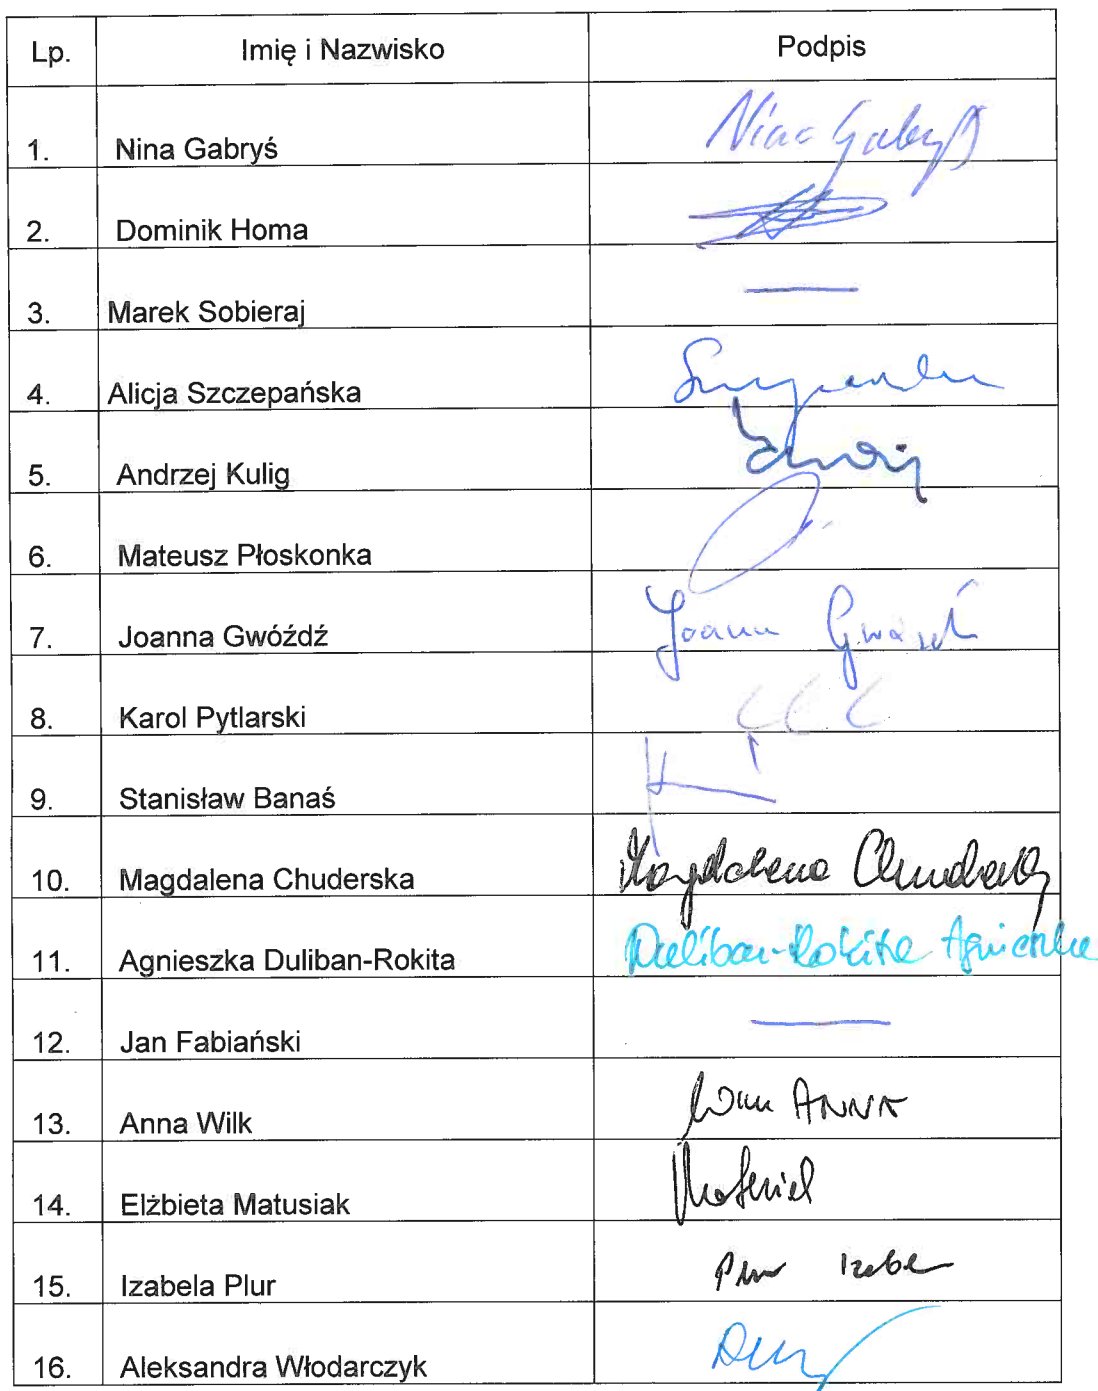 Lp. Imię i Nazwisko Podpis
1. Nina Gabryś Nina Gabryś
2. Dominik Homa
3. Marek Sobieraj —
4. Alicja Szczepańska
5. Andrzej Kulig
6. Mateusz Płoskonka
7. Joanna Gwóźdź Joanna Gwóźdź
8. Karol Pytlarski
9. Stanisław Banaś
10. Magdalena Chuderska Magdalena Chuderska
11. Agnieszka Duliban-Rokita Duliban-Rokita Agnieszka
12. Jan Fabiański —
13. Anna Wilk Wilk ANNA
14. Elżbieta Matusiak
15. Izabela Plur Plur Izabela
16. Aleksandra Włodarczyk